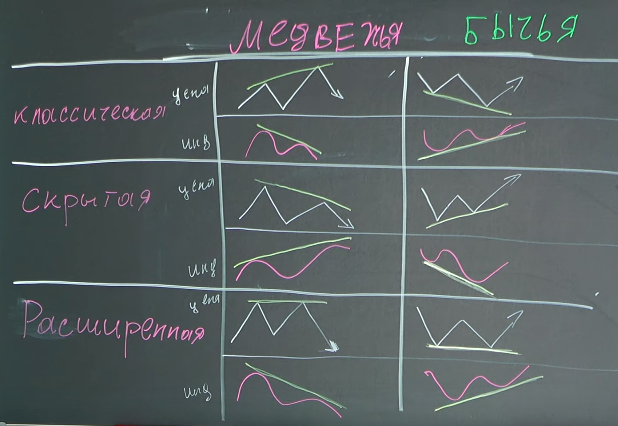 МЕДВЕЖЬЯ БЫЧЬЯ
Классическая цена
инд
Скрытая цена
инд
Расширенная цена
инд